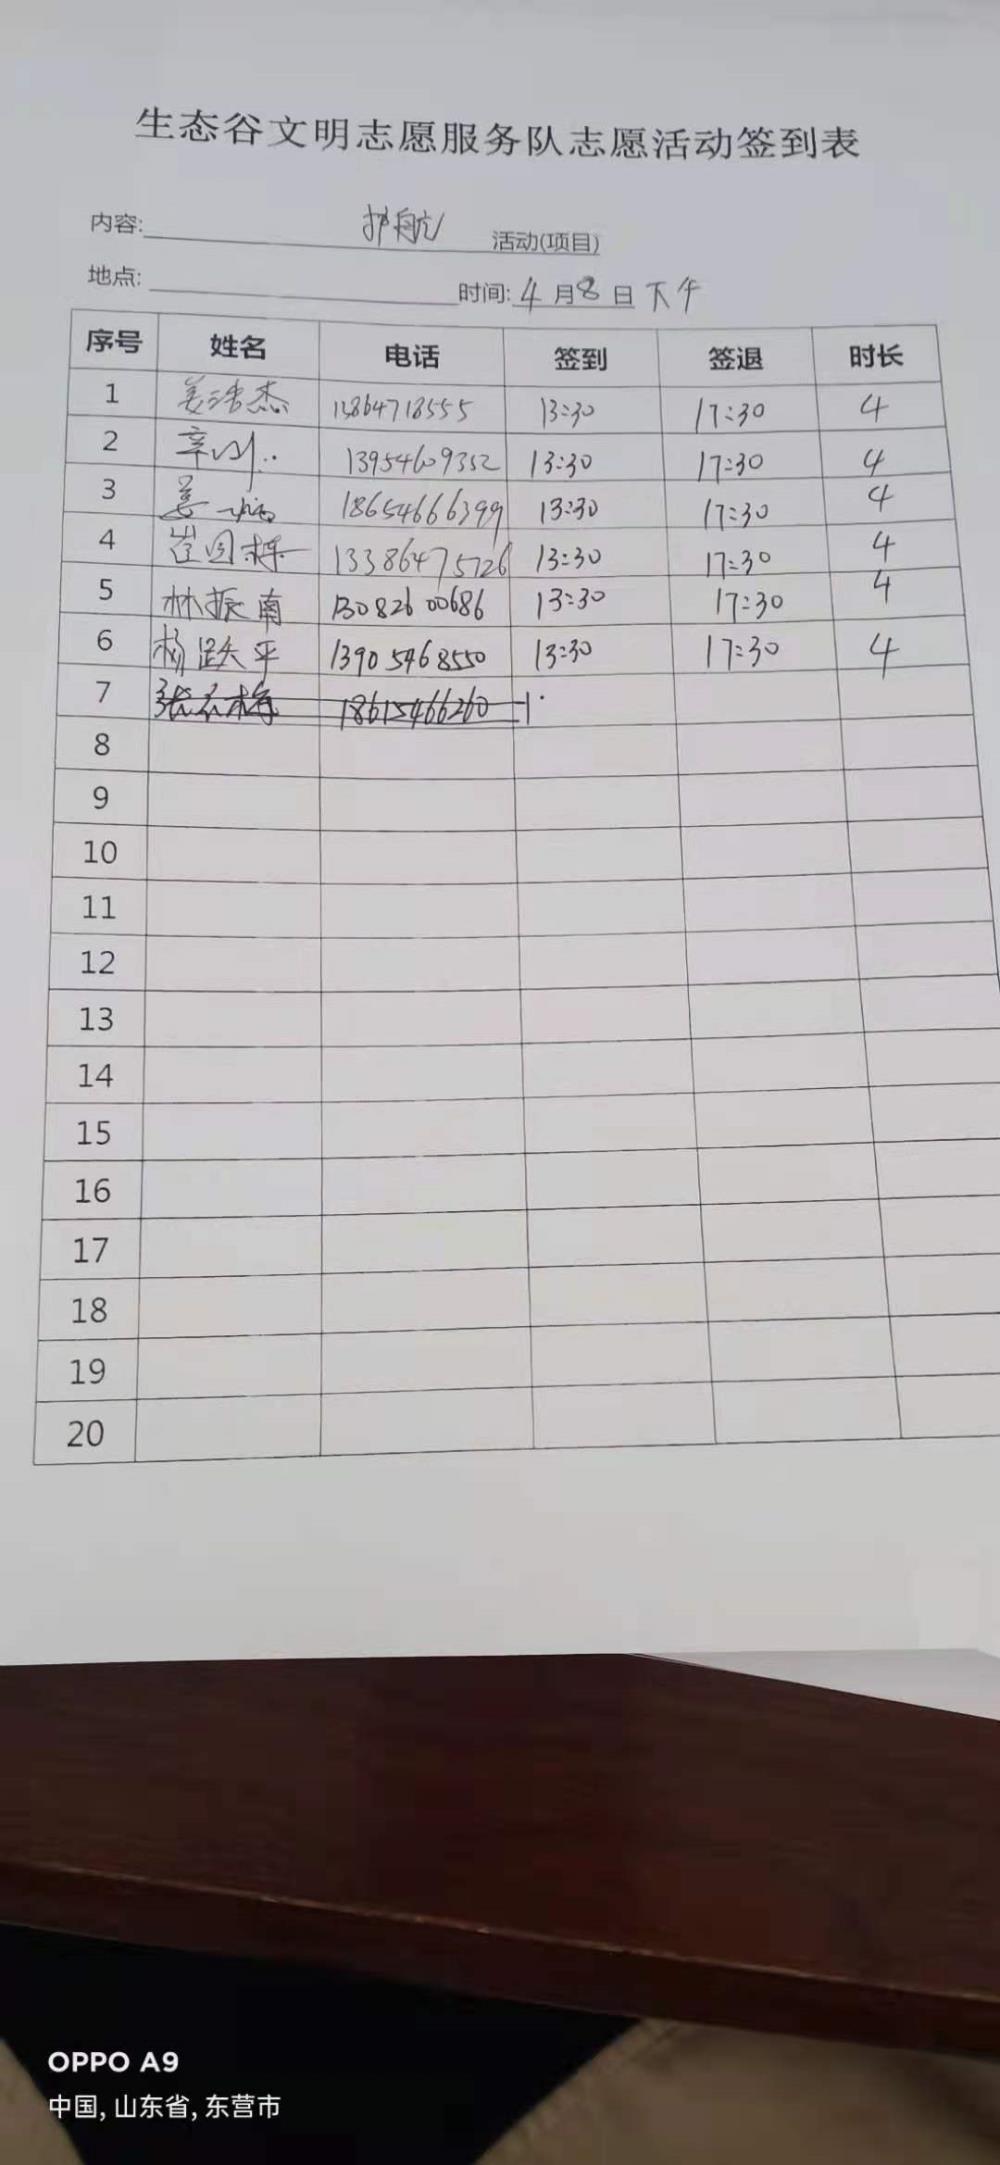 生态谷文明志愿服务队志愿活动签到表
内容: 护航 活动(项目)
地点: 时间: 4月8日下午
序号 姓名 电话 签到 签退 时长
1 姜浩杰 13864718555 13:30 17:30 4
2 辛 13954609352 13:30 17:30 4
3 姜 18654666399 13:30 17:30 4
4 崔国栋 13386475726 13:30 17:30 4
5 林振南 13082600686 13:30 17:30 4
6 杨跃平 13905468550 13:30 17:30 4
7 张 18615466260 1
8
9
10
11
12
13
14
15
16
17
18
19
20
OPPO A9
中国, 山东省, 东营市